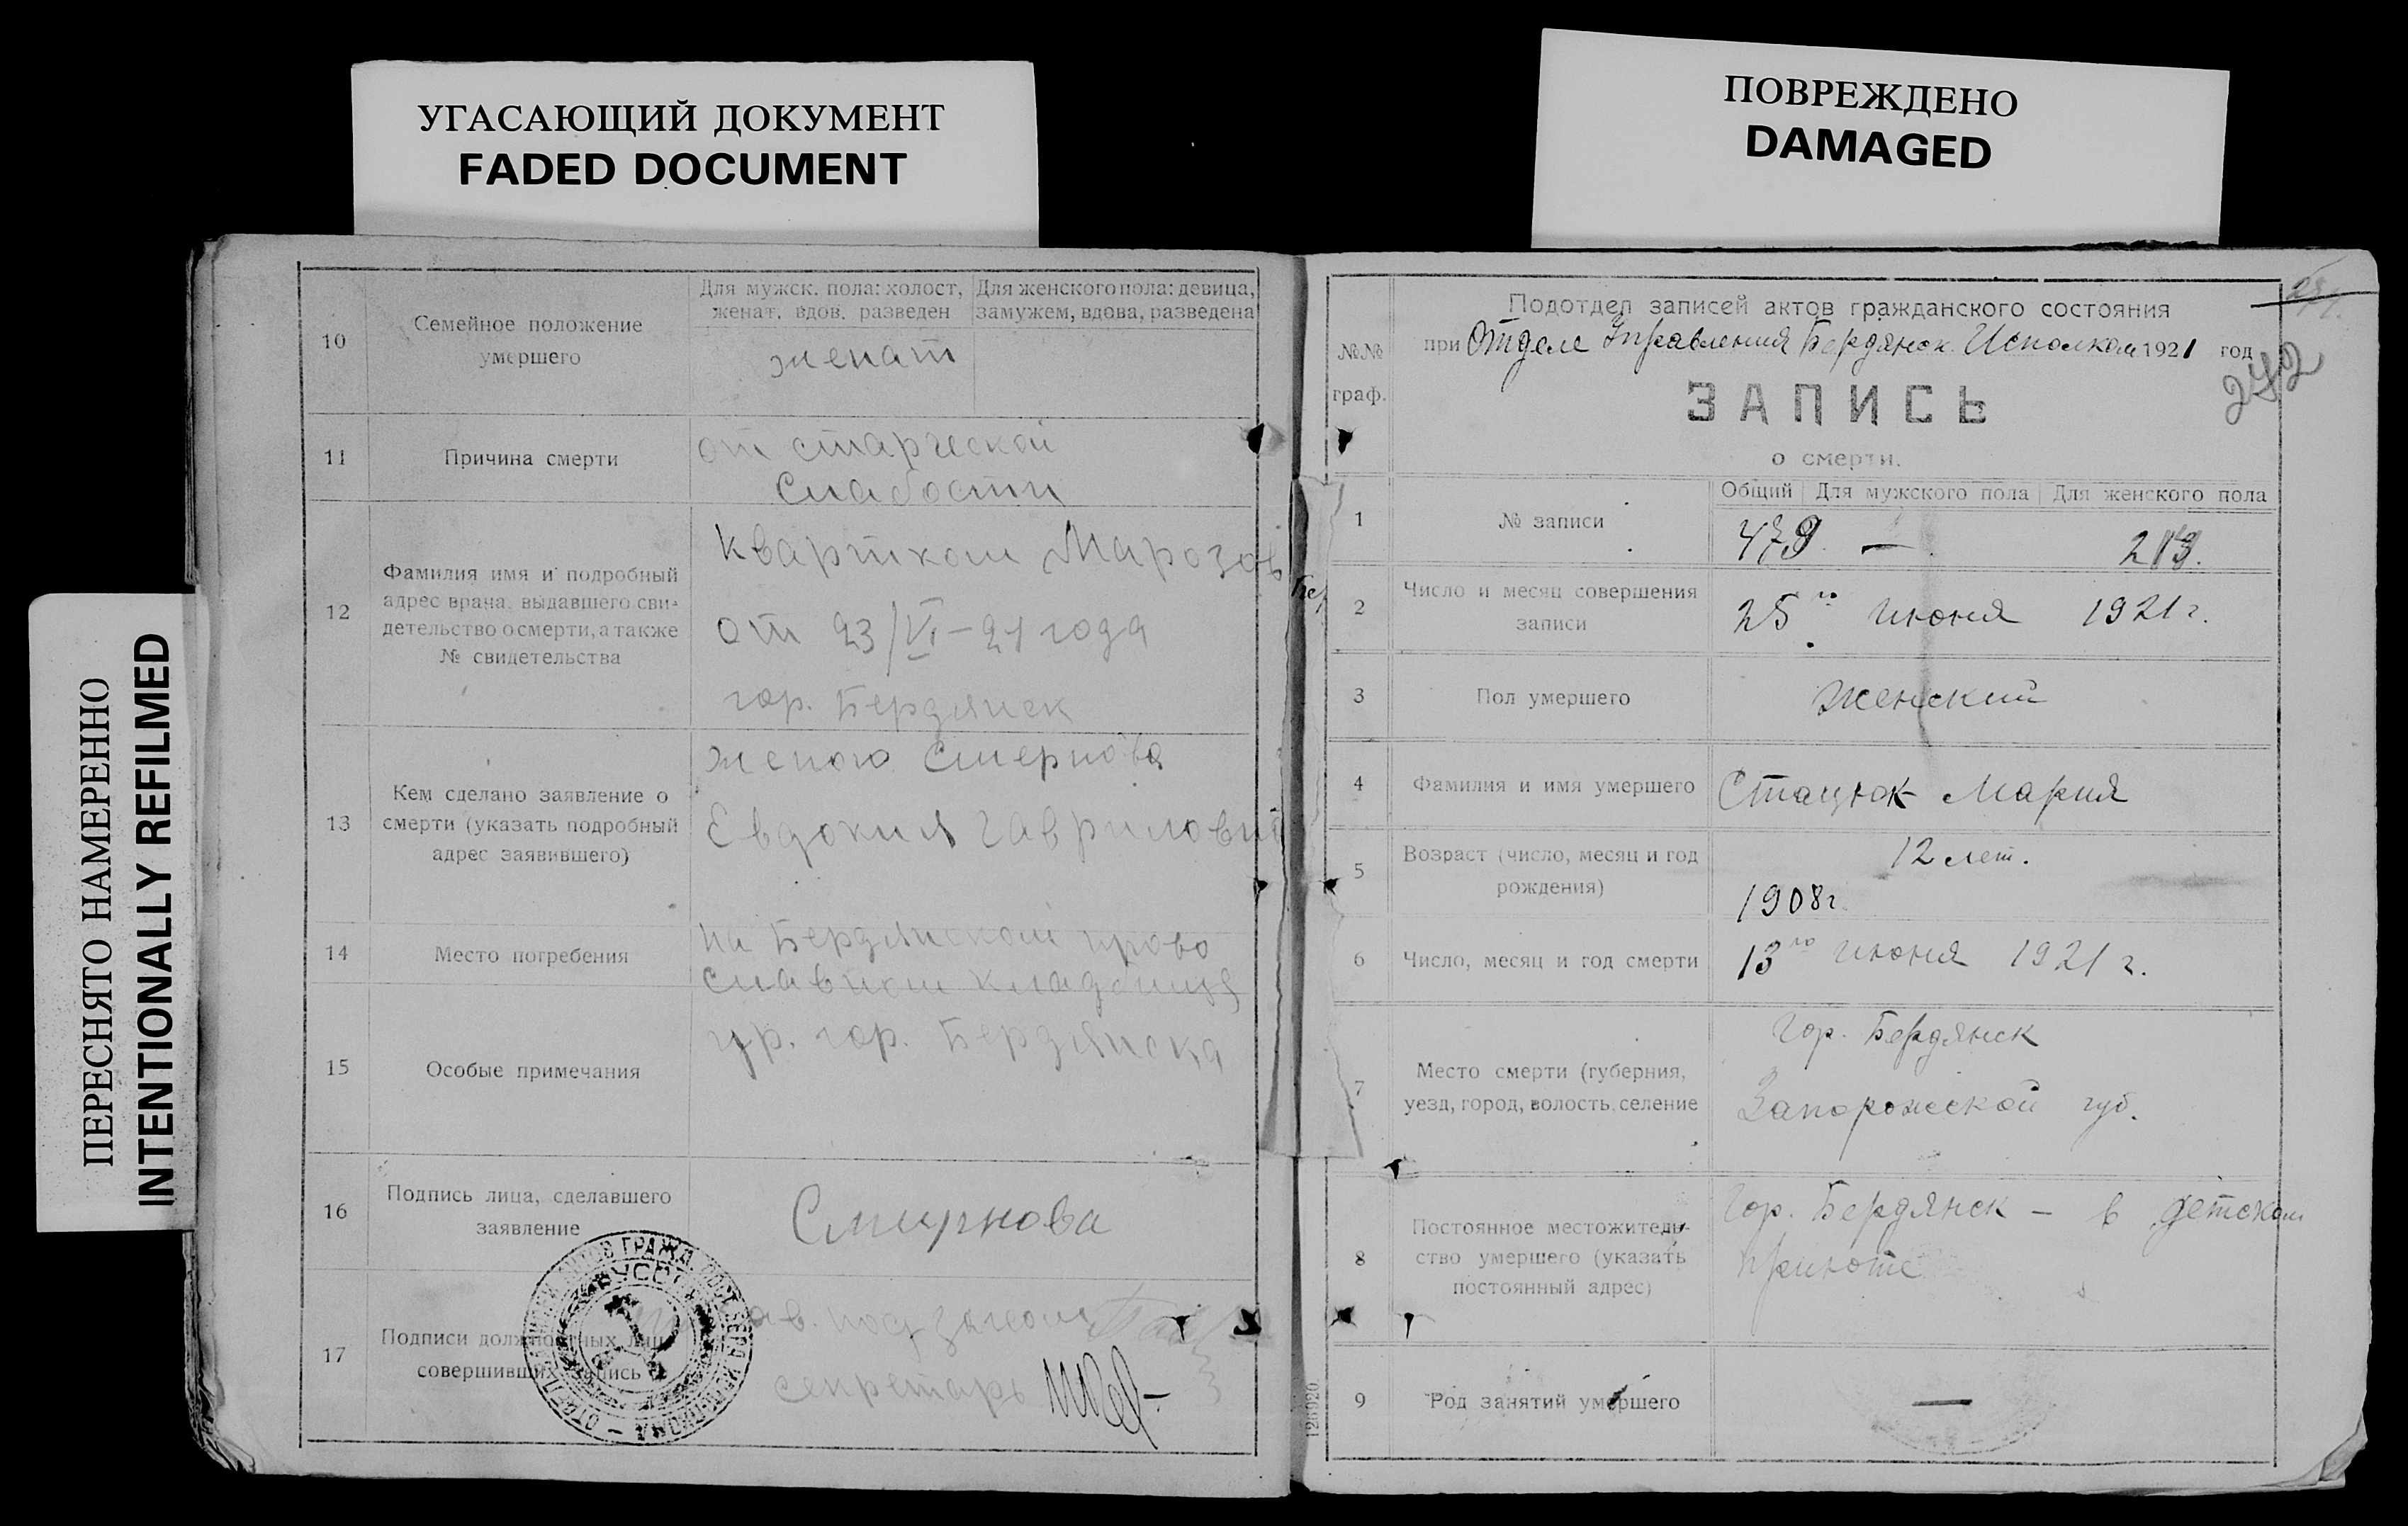 УГАСАЮЩИЙ ДОКУМЕНТ
FADED DOCUMENT
ПОВРЕЖДЕНО
DAMAGED
ПЕРЕСНЯТО НАМЕРЕННО
INTENTIONALLY REFILMED
10
Семейное положение
умершего
Для мужск. пола: холост,
женат, вдов, разведен
Для женского пола: девица,
замужем, вдова, разведена
женат
11
Причина смерти
от старческой
слабости
12
Фамилия имя и подробный
адрес врача, выдавшего сви-
детельство о смерти, а также
№ свидетельства
Квартком Марозов
от 23/VI-21 года
гор. Бердянск
13
Кем сделано заявление о
смерти (указать подробный
адрес заявившего)
женою Смернова
Евдокия
14
Место погребения
на Бердянском право
славном кладбище
15
Особые примечания
гр. гор. Бердянска
16
Подпись лица, сделавшего
заявление
Смирнова
17
Подписи должностных лиц
совершивших запись
секретарь
№№
граф.
Подотдел записей актов гражданского состояния
при Отделе Управления Бердянск. Исполком 1921 год
242
ЗАПИСЬ
о смерти.
1
№ записи
Общий
Для мужского пола
Для женского пола
479. — 213.
2
Число и месяц совершения
записи
25го июня 1921 г.
3
Пол умершего
Женский
4
Фамилия и имя умершего
Стацюк Мария
5
Возраст (число, месяц и год
рождения)
12 лет.
1908 г
6
Число, месяц и год смерти
13го июня 1921 г.
7
Место смерти (губерния,
уезд, город, волость, селение
Гор. Бердянск
Запорожской губ.
8
Постоянное местожитель-
ство умершего (указать
постоянный адрес)
Гор. Бердянск — в детском
приюте
9
Род занятий умершего
—